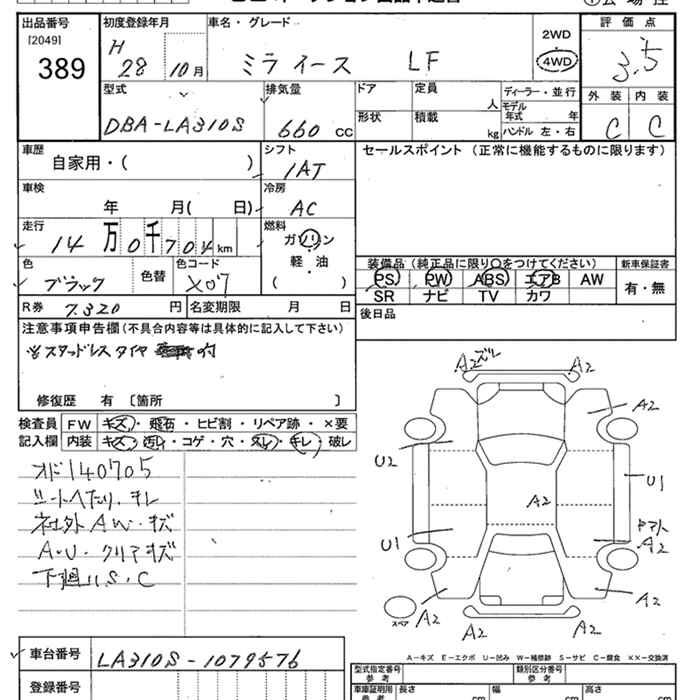 出品番号 初度登録年月 車名・グレード 2WD 評価点
[2049]
389
H 28 10月
ミライース LF
4WD
3.5
外装 内装
C C
型式 排気量 ドア 定員 人 ディーラー・並行
DBA-LA310S
660 cc
形状 積載 kg
モデル年式 年
ハンドル 左・右
車歴 シフト セールスポイント（正常に機能するものに限ります）
自家用・（ ） IAT
車検 冷房
年 月( 日) AC
走行 燃料
14万0千704km
ガソリン
軽・油
( )
色 色替 色コード
ブラック X07
装備品（純正品に限り○をつけてください） 新車保証書
PS PW ABS エアB AW 有・無
SR ナビ TV カワ
R券 7.320 円 名変期限 月 日
後日品
注意事項申告欄(不具合内容等は具体的に記入して下さい)
スタッドレスタイヤ 付
修復歴 有 〔箇所 〕
検査員 FW キズ・飛石・ヒビ割・リペア跡・×要
記入欄 内装 キズ・汚レ・コゲ・穴・スレ・キレ・破レ
オド140705
シートヘたり、キレ
社外AW・キズ
A・U・クリアキズ
下廻りS・C
A2 ズレ A2
A2
U2
U1
A2
U1
ヤブレ
A2
A2
A2
A2
A2
スペア
車台番号 LA310S-1079576
登録番号
A－キズ E－エクボ U－凹み W－補修跡 S－サビ C－腐食 ××－交換済
型式指定番号 参考
類別区分番号 参考
車庫証明用 参考
長さ cm 幅 cm 高さ cm